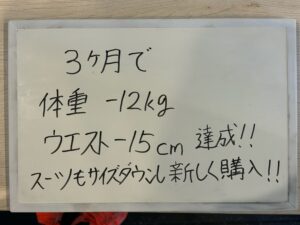 3ヶ月で
体重 -12kg
ウエスト-15cm 達成!!
スーツもサイズダウンし新しく購入!!